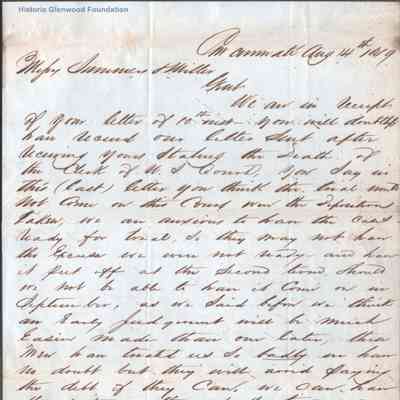 Historic Glenwood Foundation
Cincinnati Aug 14th 1849
Messrs Summers & Miller
Gent
We are in receipt
of your letter of 10th inst. you will doubtless
have received our letter sent after
receiving yours stating the death of
the Clerk of U. S Court, You Say in
this (last) letter you think the trial will
not Come on this Court over the
we are anxious to have the case
ready for trial, so they may not have
the excuse we were not ready and have
it put off at the second time, should
we not be able to have it Come on in
September, as we said before we think
an Early Judgment will be much
Easier made than one later, these
Men have treated us so badly we have
no doubt but they will avoid paying
the debt if they can, we can have